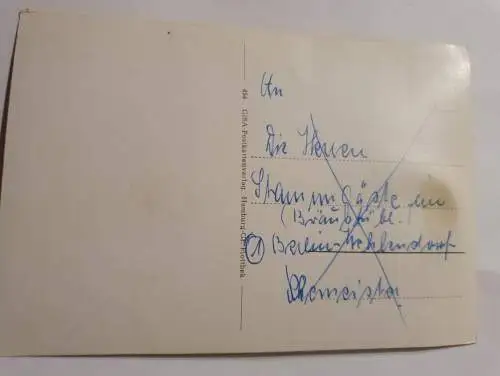 An
Die Herren
Stammgäste im
(Bräustübl.
① Berlin-Zehlendorf
454 GISA-Postkartenverlag, Hamburg-Gr. Flottbek